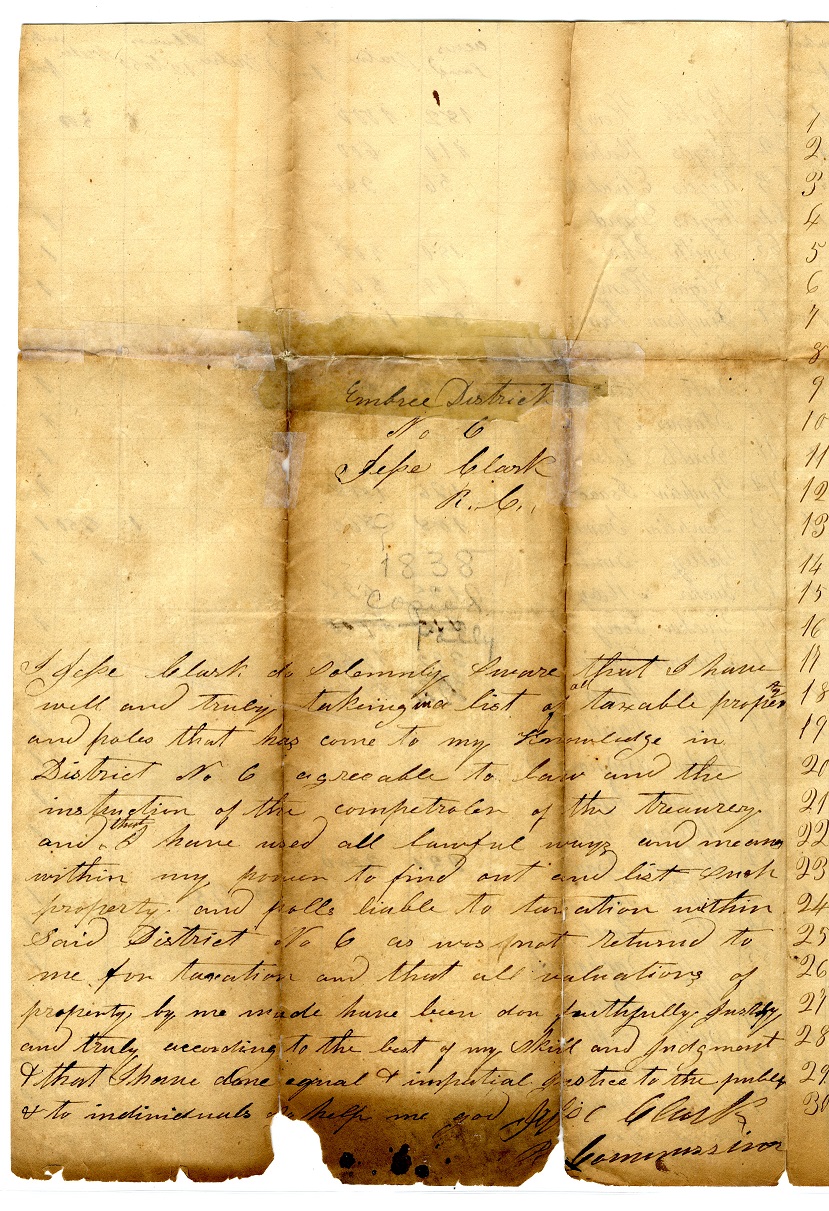 Embree District
No 6
Jesse Clark
R. C.
1838
Copied
I Jesse Clark do Solemnly Sware that I have
well and truly taking a list of all taxable property
and poles that has come to my Knowledge in
District No 6 agreeable to law and the
instruction of the competroler of the treasurey
and that I have used all lawful ways and means
within my power to find out and list such
property and polls liable to taxation within
Said District No 6 as was not returned to
me for taxation and that all valuations of
property by me made have been don faithfully Justly
and truly according to the best of my Skill and Judgment
& that I have done equal & impatial justice to the public
& to individuals help me god Jesse Clark
R Commissinor
1
2
3
4
5
6
7
8
9
10
11
12
13
14
15
16
17
18
19
20
21
22
23
24
25
26
27
28
29
30